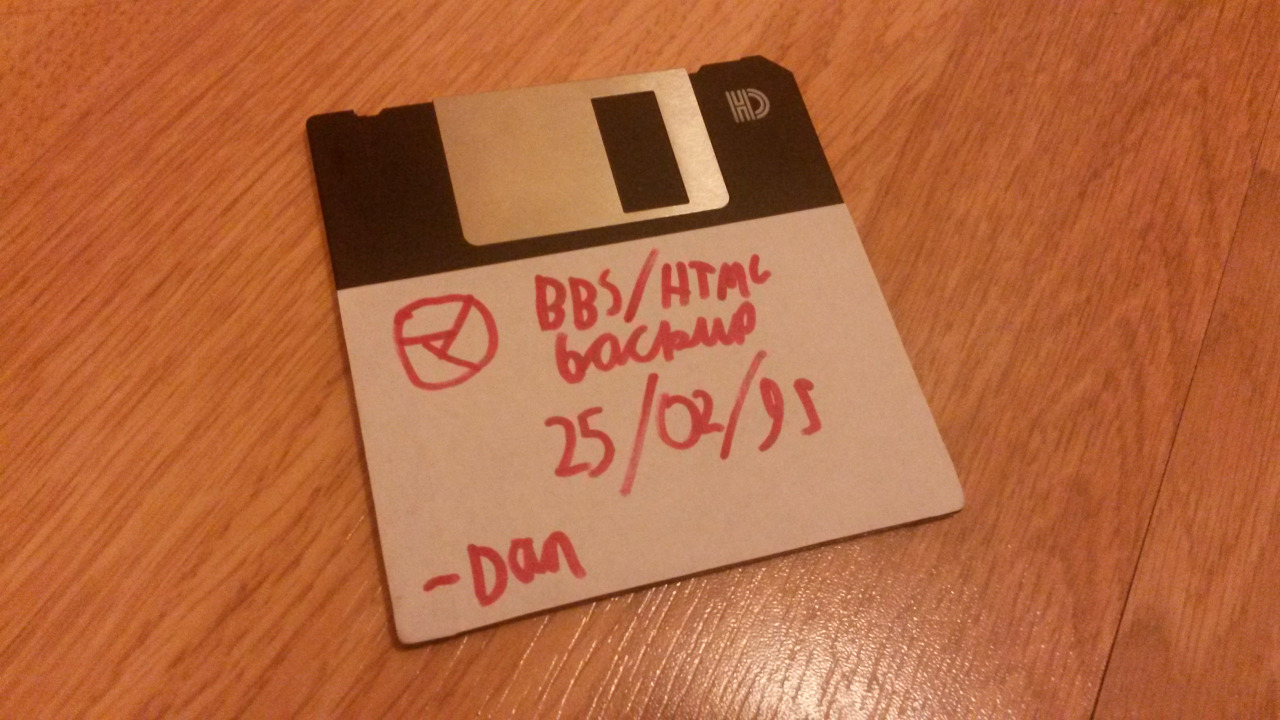 HD
BBS/HTML
backup
25/02/95
-Dan